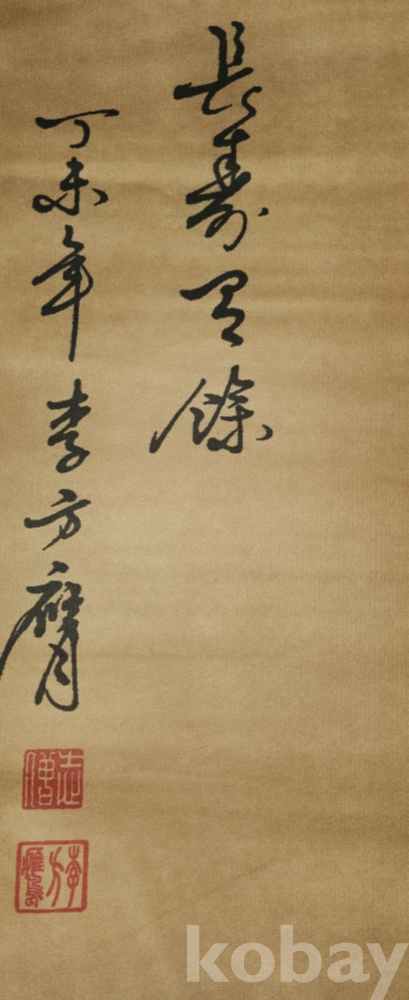 長壽有餘
丁未年李方膺
kobay